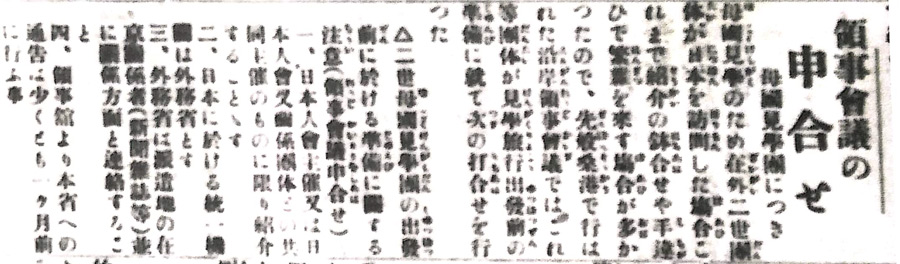 領事會議の
申合せ
母國見學團につき
母國見學のため在外二世團
体が日本を訪問した塲合こ
れまで紹介の鉢合せや手違
ひで繁雜を來す塲合が多か
つたので、先般桑港で行は
れた沿岸領事會議ではこれ
等團体が見學旅行出發前の
準備に就て次の打合せを行
つた
△二世母國見學團の出發
前に於ける準備に關する
注意(領事會議申合せ)
一、日本人會主催又は日
本人會又關係團体との共
同主催のものに限り紹介
することゝす
二、日本に於ける統一機
關は外務省とす
三、外務省は派遣地の在
京關係者(新聞雜誌等)並
に關係方面と連絡するこ
と
四、領事館より本省への
通告は少くとも一ケ月前
に行ふ事